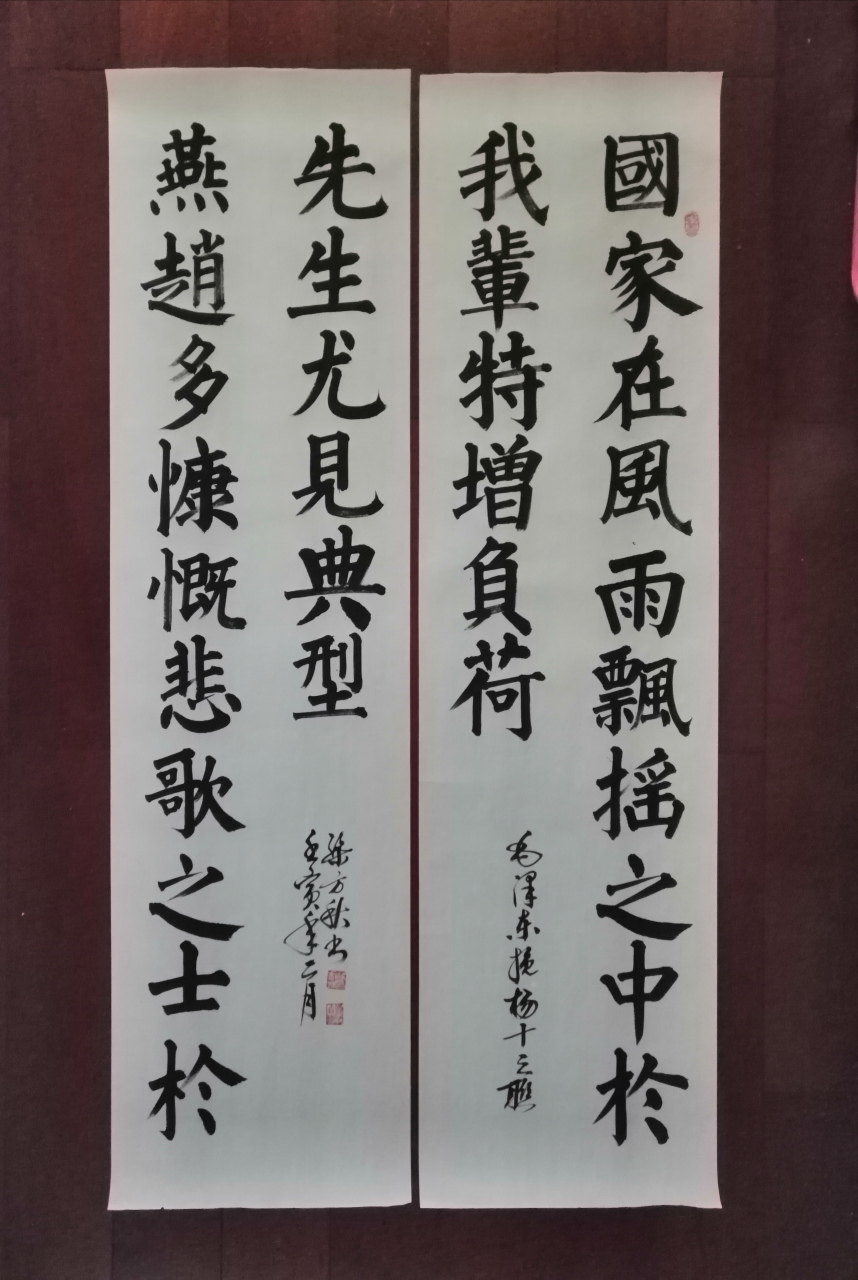 國家在風雨飄摇之中於
我輩特增負荷
毛澤东挽杨十三聯
燕趙多慷慨悲歌之士於
先生尤見典型
梁方秋书
壬寅年二月